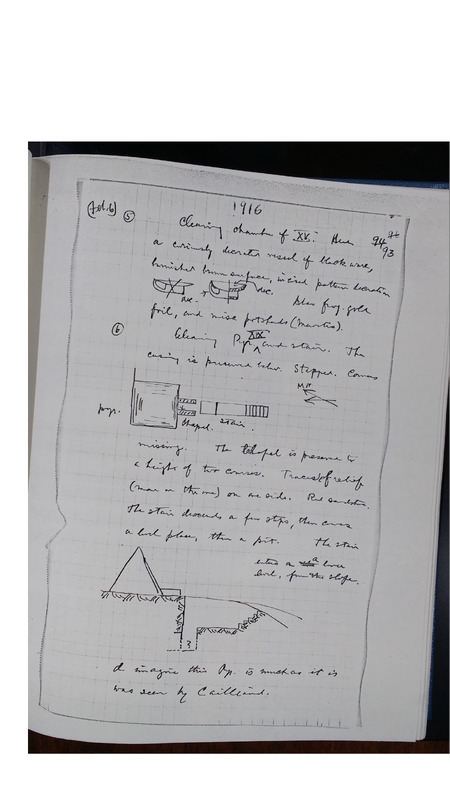 1916
(Feb. 6) ⑤ Clearing chamber of XV. Here 94 93
a curiously decorated vessel of black ware,
burnished brown surface, incised pattern decoration
dec. + dec. Also frag. gold
foil, and misc potsherds (Meroitic).
⑥ Clearing Pyr. XIX and stair. The
casing is preserved below. Stepped. Corners
pyr. chapel. stair. M N
missing. The chapel is preserved to
a height of two courses. Traces of relief
on one side. Red sandstone.
The stair descends a few steps, then comes
a level place, then a pit. The stair
lower
level, from the slope.
?
I imagine this Pyr. is much as it is
was seen by Cailliaud.